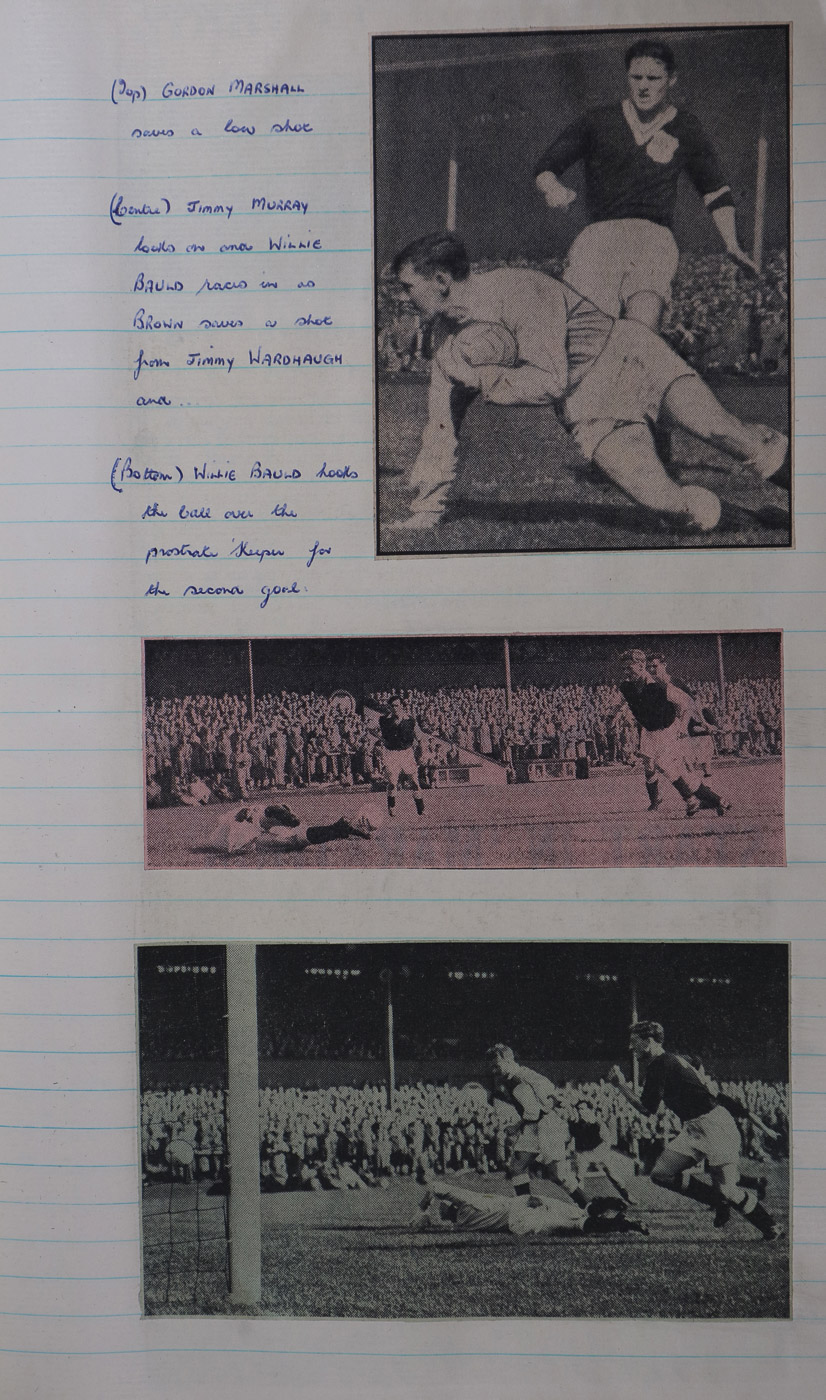 (Top) GORDON MARSHALL
saves a low shot
(Centre) JIMMY MURRAY
looks on and WILLIE
BAULD races in as
BROWN saves a shot
from JIMMY WARDHAUGH
and ...
(Bottom) WILLIE BAULD hooks
the ball over the
prostrate 'Keeper for
the second goal.